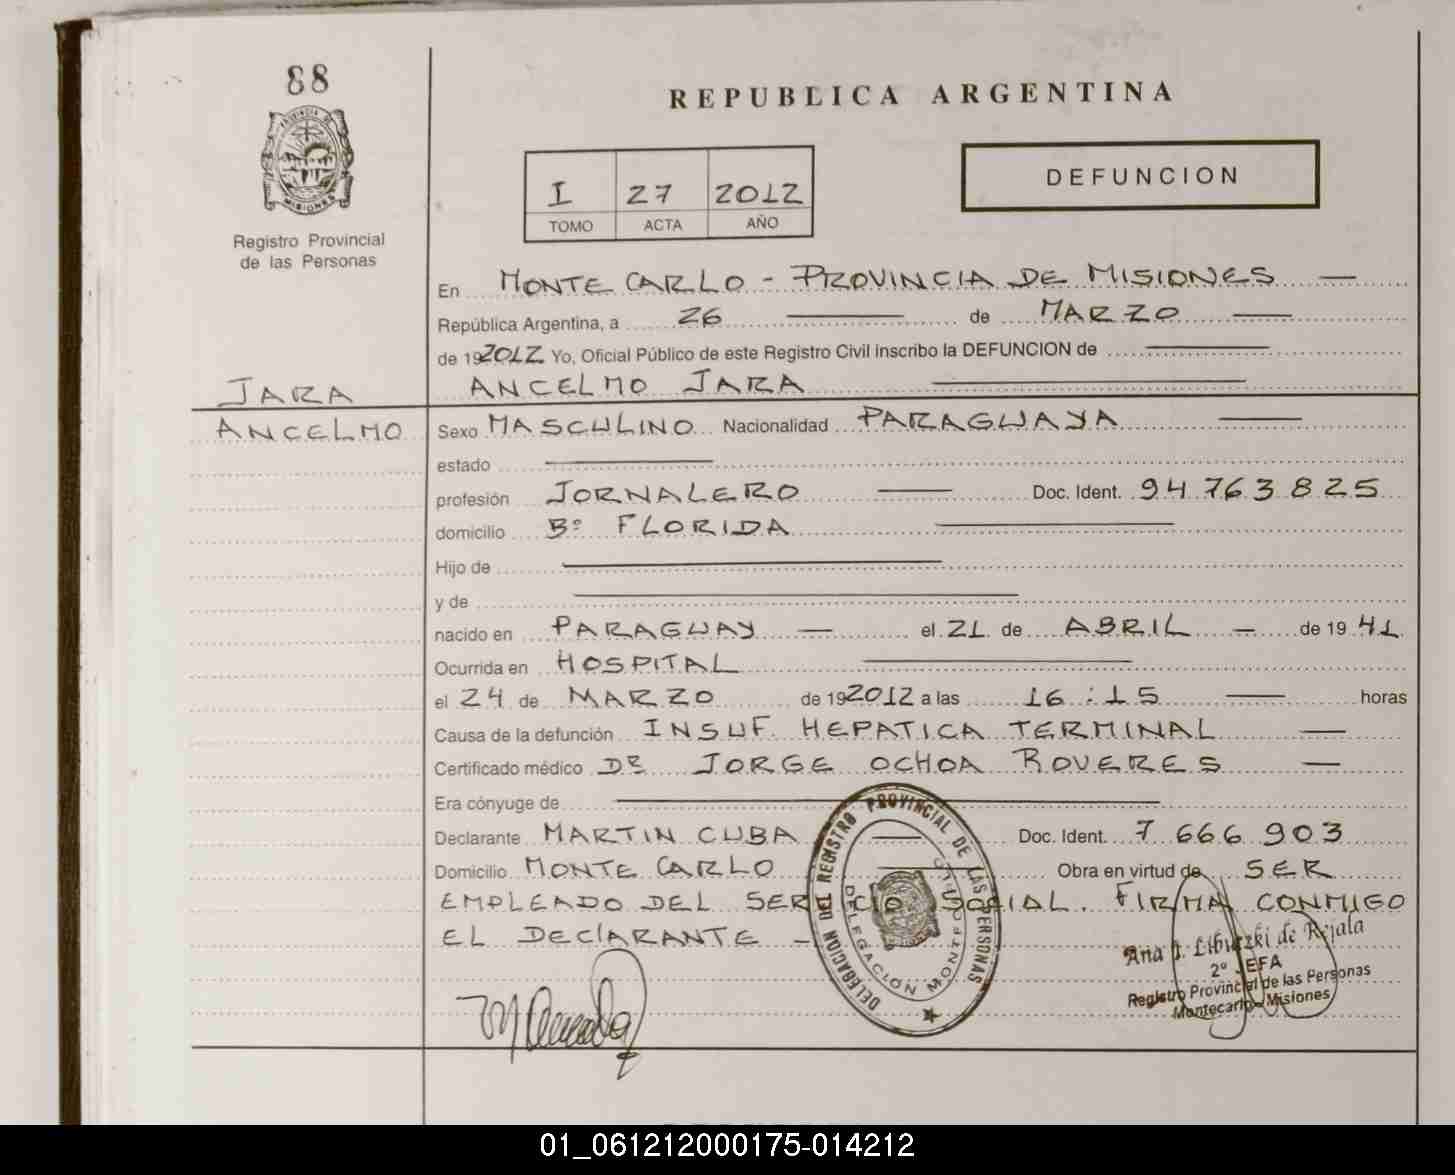 88
PROVINCIA DE
MISIONES
Registro Provincial
de las Personas
REPUBLICA ARGENTINA
I 27 2012
TOMO ACTA AÑO
DEFUNCION
En MONTE CARLO - PROVINCIA DE MISIONES —
República Argentina, a 26 — de MARZO —
de 192012 Yo, Oficial Público de este Registro Civil inscribo la DEFUNCION de —
JARA ANCELMO JARA —
ANCELMO Sexo MASCULINO Nacionalidad PARAGUAYA —
estado —
profesión JORNALERO — Doc. Ident. 94 763 825
domicilio Bº FLORIDA —
Hijo de —
y de —
nacido en PARAGUAY — el 21 de ABRIL — de 19 41
Ocurrida en HOSPITAL —
el 24 de MARZO de 192012 a las 16:15 — horas
Causa de la defunción INSUF. HEPATICA TERMINAL —
Certificado médico DR JORGE OCHOA ROVERES —
Era cónyuge de —
Declarante MARTIN CUBA — Doc. Ident. 7 666 903
Domicilio MONTE CARLO — Obra en virtud de SER
EMPLEADO DEL SERVICIO SOCIAL. FIRMA CONMIGO
EL DEClARANTE -
DELEGACION DEL REGISTRO PROVINCIAL DE LAS PERSONAS
DELEGACIÓN MONTECARLO
Ana J. de Rejala
2º JEFA
Registro Provincial de las Personas
Montecarlo - Misiones
01_061212000175-014212